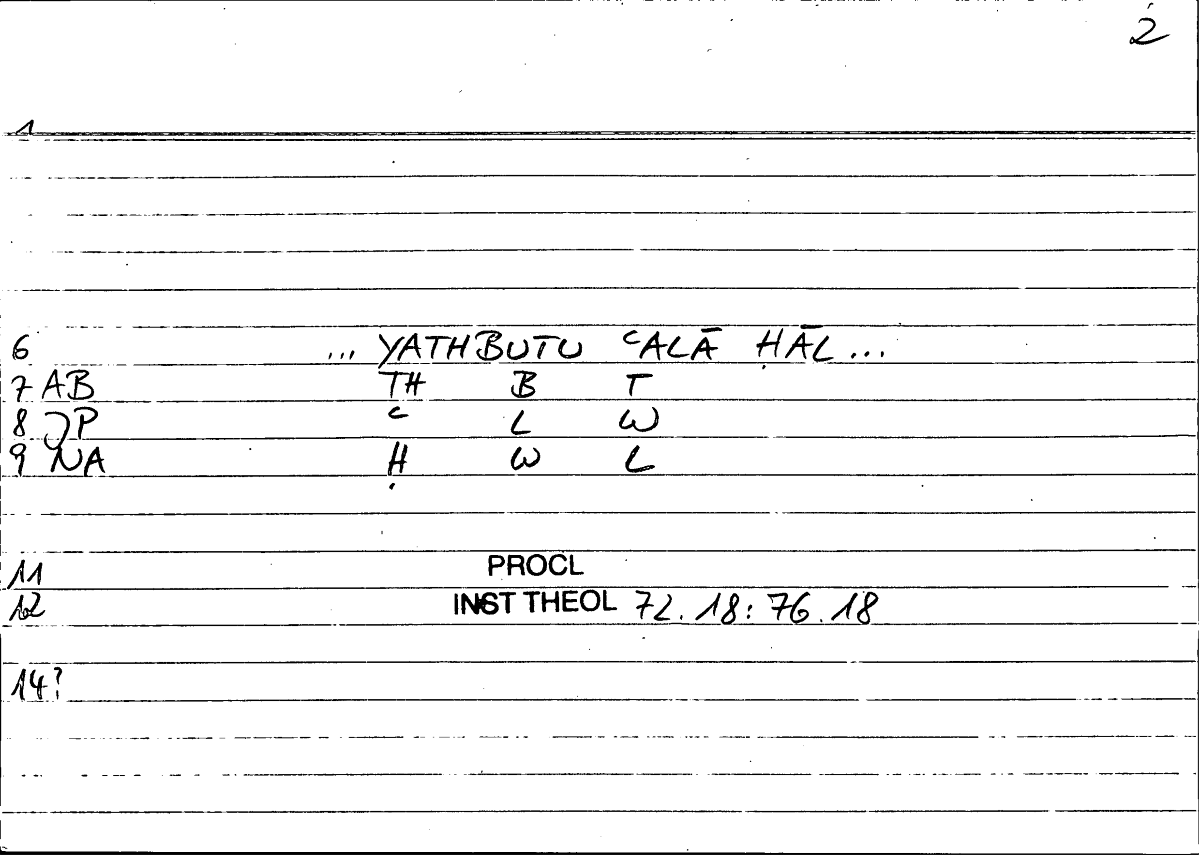 2
1
6 ... YATHBUTU ʿALĀ ḤĀL ...
7 AB TH B T
8 JP ʿ L W
9 NA Ḥ W L
11 PROCL
12 INST THEOL 72.18:76.18
14?